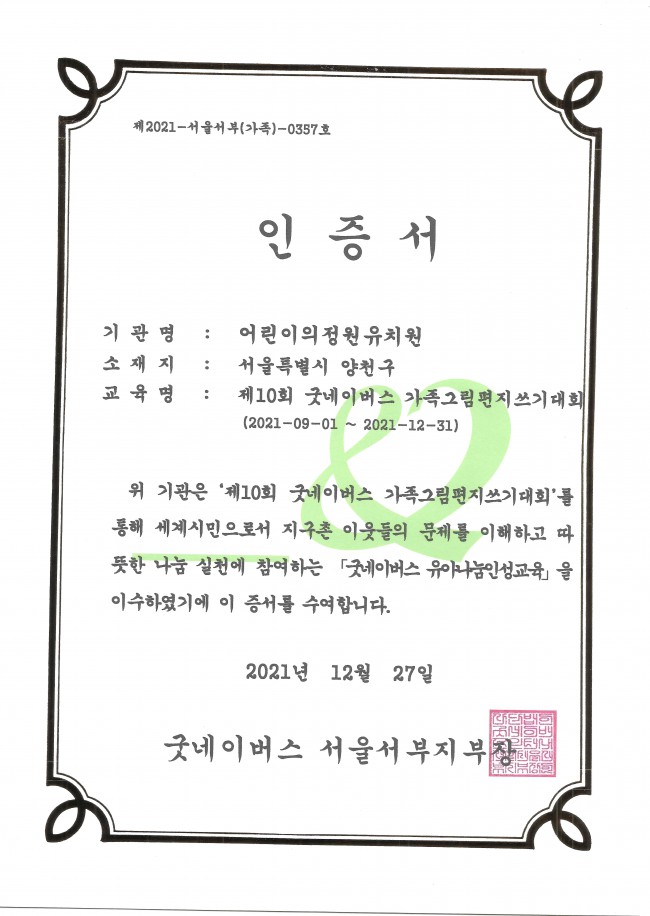 제2021-서울서부(가족)-0357호
인 증 서
기 관 명 : 어린이의정원유치원
소 재 지 : 서울특별시 양천구
교 육 명 : 제10회 굿네이버스 가족그림편지쓰기대회
(2021-09-01 ~ 2021-12-31)
위 기관은 '제10회 굿네이버스 가족그림편지쓰기대회'를
통해 세계시민으로서 지구촌 이웃들의 문제를 이해하고 따
뜻한 나눔 실천에 참여하는 「굿네이버스 유아나눔인성교육」을
이수하였기에 이 증서를 수여합니다.
2021년 12월 27일
굿네이버스 서울서부지부장